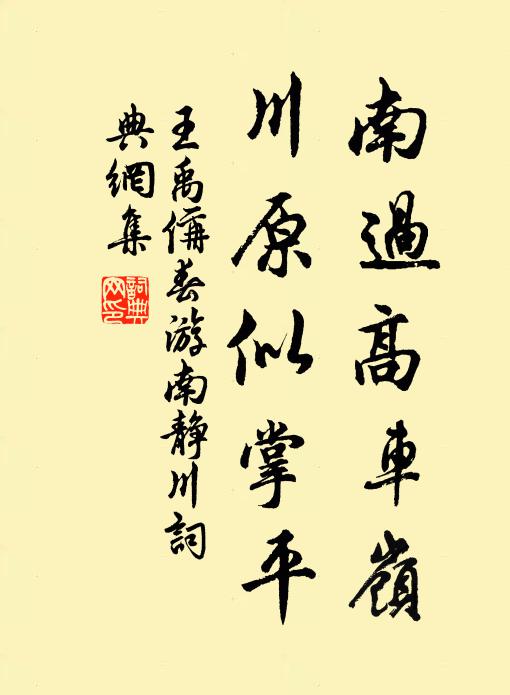 南過高車嶺
川原似掌平
王禹偁春游南静川詞
典網集
詞典网印